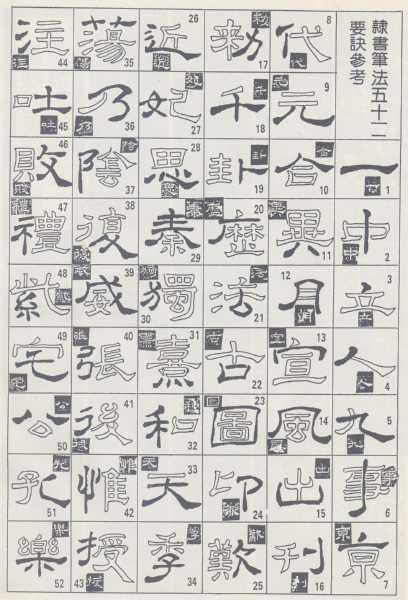 隸書筆法五十二
要訣參考
一 1
中 2
立 3
人 4
九 5
事 6
京 7
代 8
元 9
合 10
異 11
月 12
宣 13
風 14
出 15
刊 16
勑 17
千 18
卦 19
歷 20
活 21
古 22
圖 23
印 24
歎 25
近 26
妃 27
思 28
秦 29
獨 30
熹 31
和 32
天 33
季 34
蕩 35
乃 36
陰 37
復 38
威 39
張 40
後 41
惟 42
授 43
注 44
吐 45
敗 46
禮 47
紫 48
宅 49
公 50
孔 51
樂 52